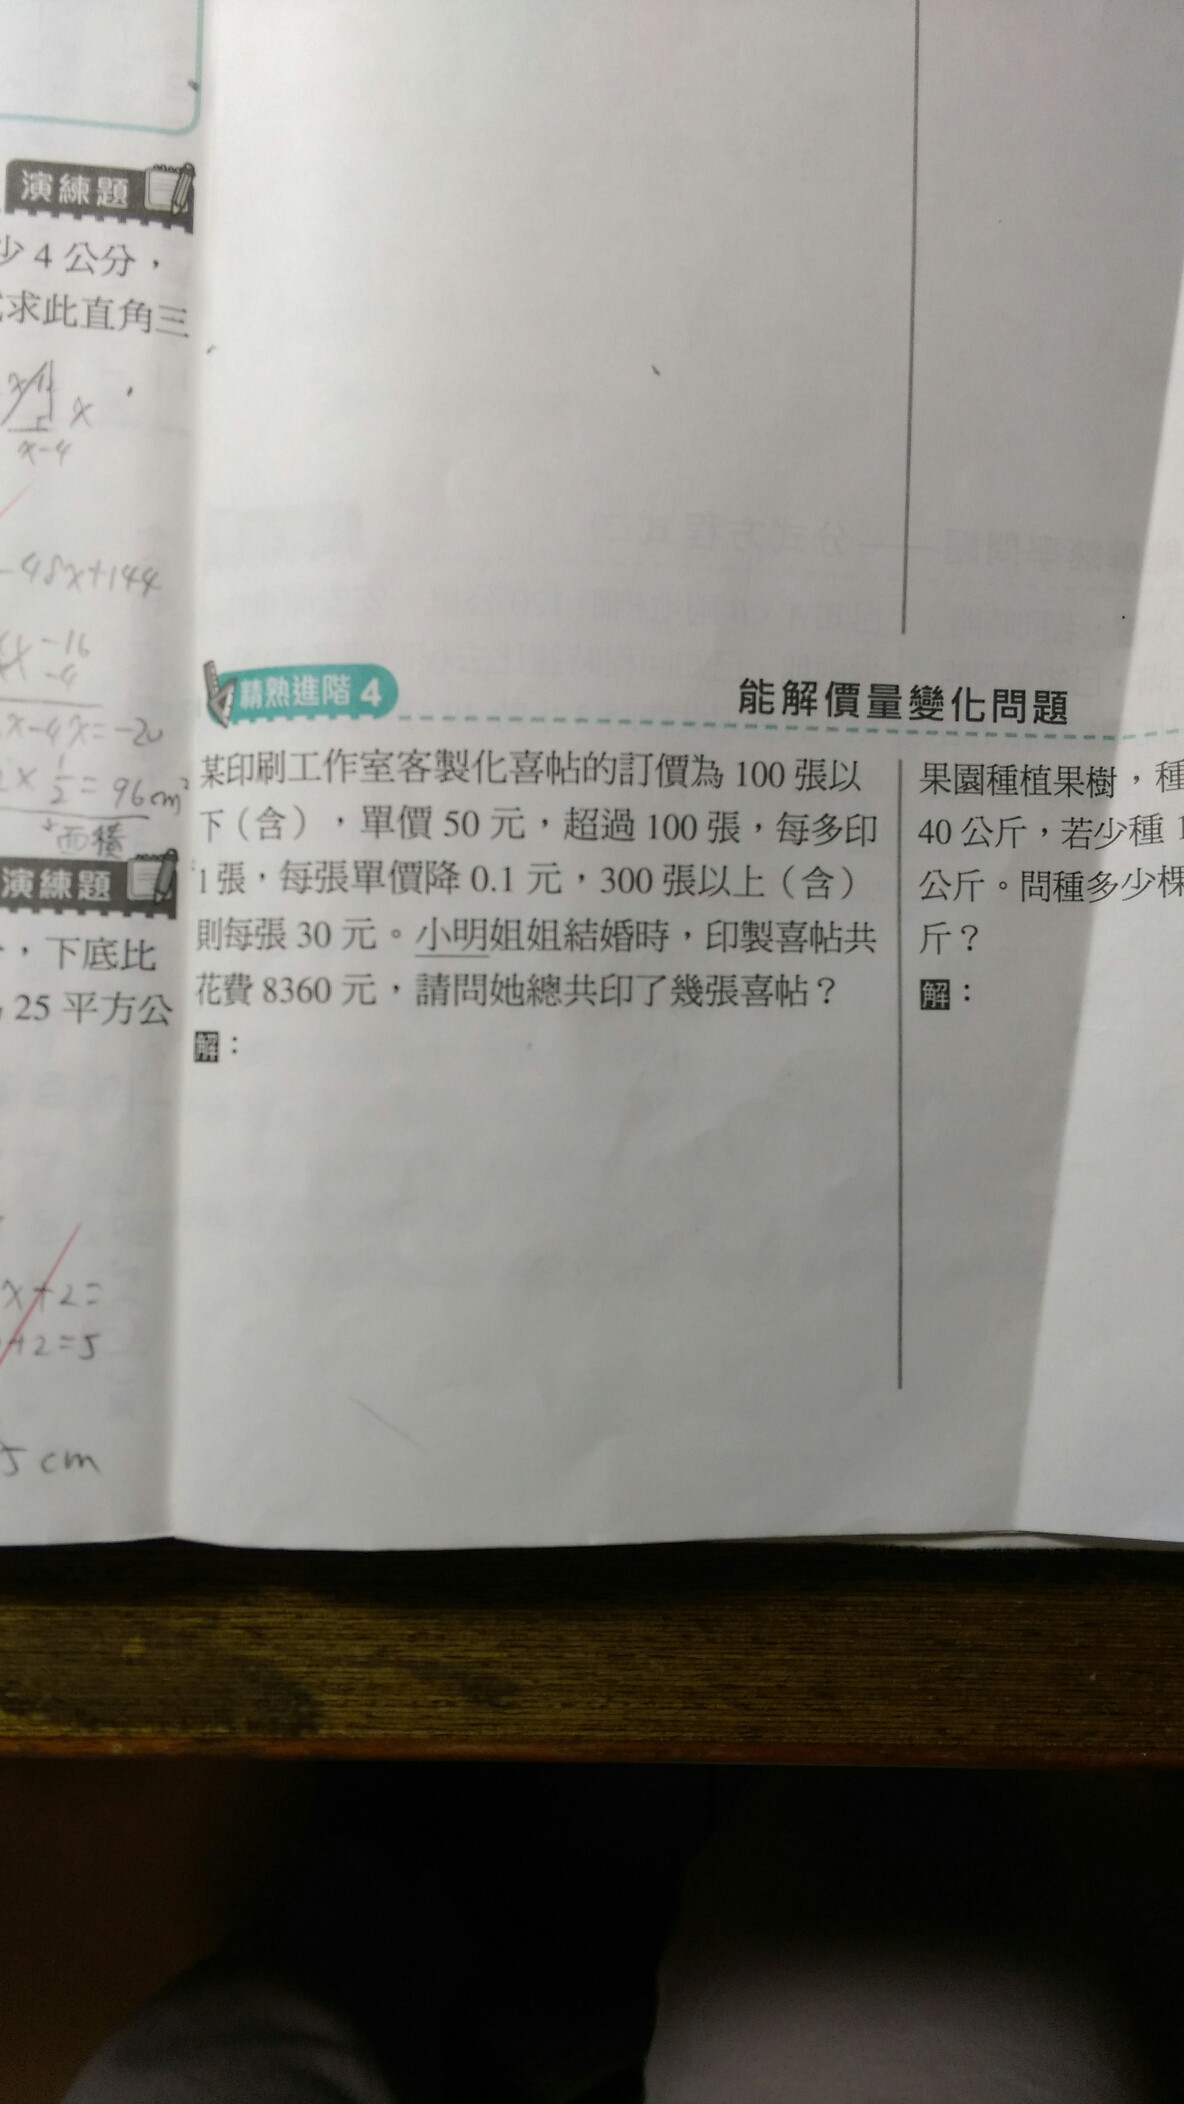 演練題
少 4 公分，
求此直角三
x
x-4
-48x+144
-16
-4
x-4x=-20
x 1/2 = 96cm²
面積
演練題
，下底比
25 平方公
x+2=
+2=5
5 cm
精熟進階 4
能解價量變化問題
某印刷工作室客製化喜帖的訂價為 100 張以
下（含），單價 50 元，超過 100 張，每多印
1 張，每張單價降 0.1 元，300 張以上（含）
則每張 30 元。小明姐姐結婚時，印製喜帖共
花費 8360 元，請問她總共印了幾張喜帖？
解：
果園種植果樹，種
40 公斤，若少種 1
公斤。問種多少棵
斤？
解：